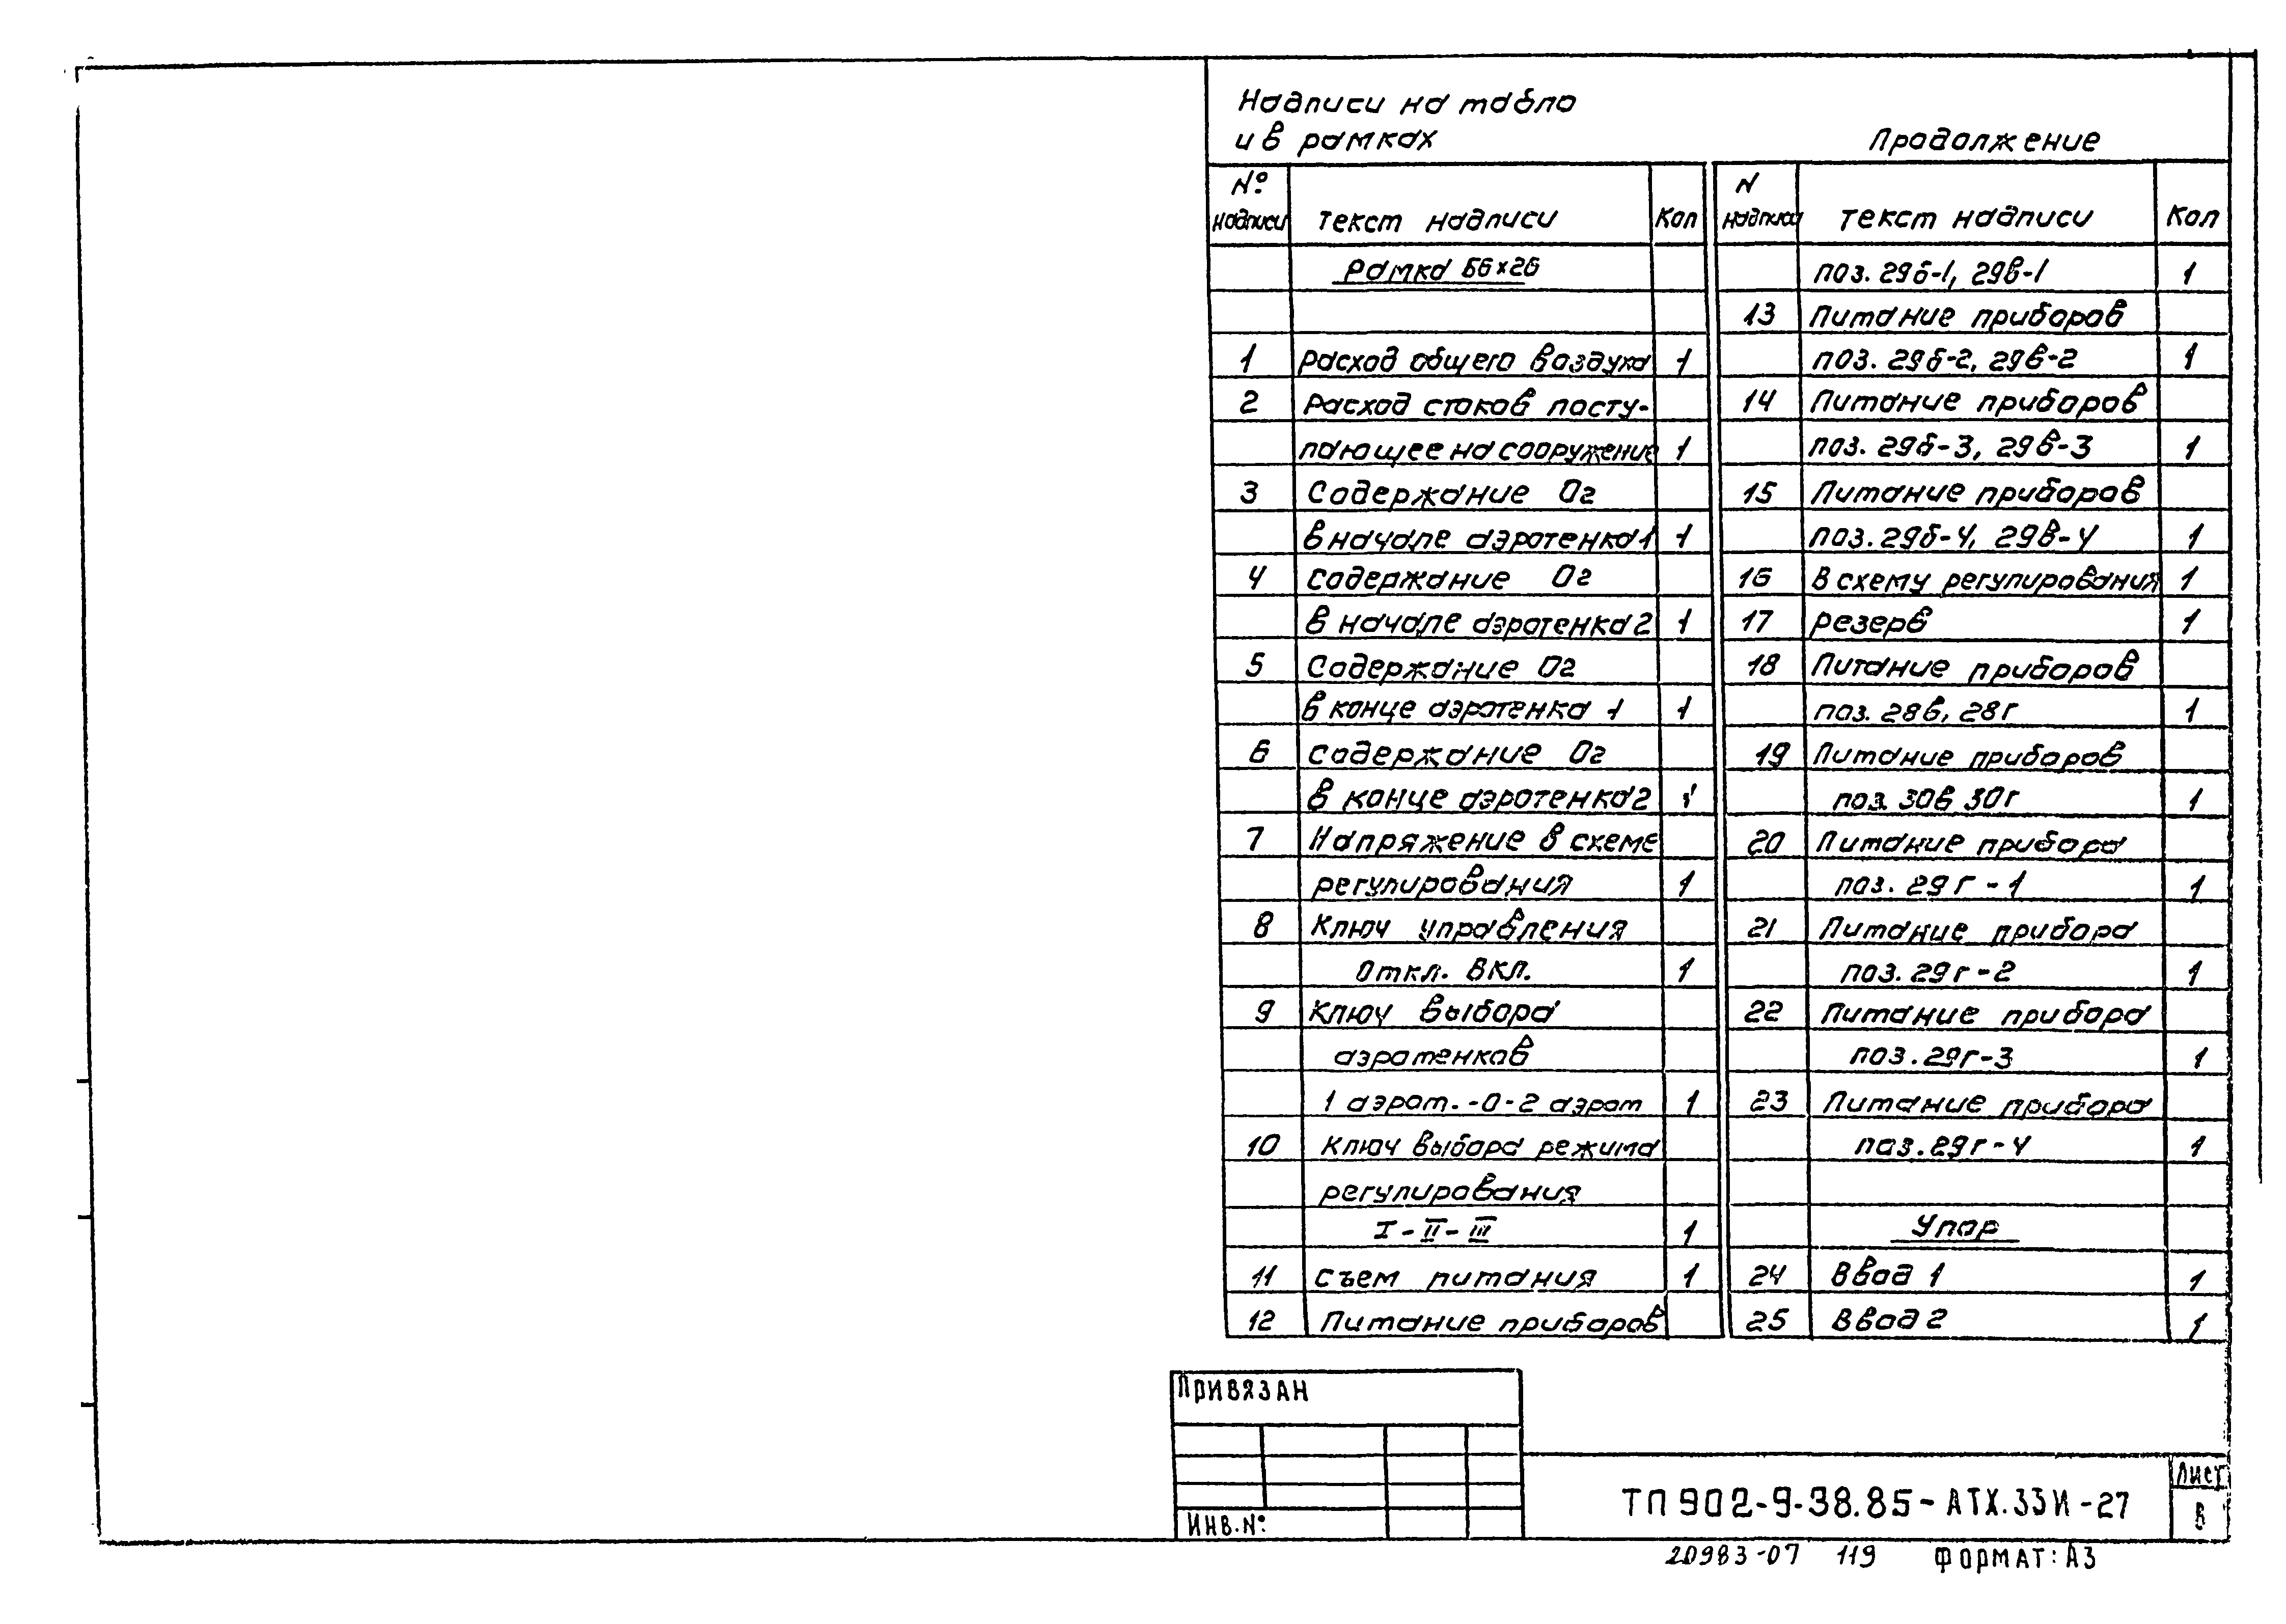 Надписи на табло
и в рамках
№ надписи текст надписи Кол
Рамка 66×26
1 Расход общего воздуха 1
2 Расход стоков посту-
пающее на сооружение 1
3 Содержание О2
в начале аэротенка 1 1
4 Содержание О2
в начале аэротенка 2 1
5 Содержание О2
в конце аэротенка 1 1
6 Содержание О2
в конце аэротенка 2 1
7 Напряжение в схеме
регулирования 1
8 Ключ управления
Откл. Вкл. 1
9 Ключ выбора
аэротенков
1 аэрот. -0-2 аэрот 1
10 Ключ выбора режима
регулирования
I - II - III 1
11 Съем питания 1
12 Питание приборов
Продолжение
N надписи текст надписи Кол
поз. 29б-1, 29в-1 1
13 Питание приборов
поз. 29б-2, 29в-2 1
14 Питание приборов
поз. 29б-3, 29в-3 1
15 Питание приборов
поз. 29б-4, 29в-4 1
16 В схему регулирования 1
17 резерв 1
18 Питание приборов
поз. 28в, 28г 1
19 Питание приборов
поз. 30в 30г 1
20 Питание прибора
поз. 29г-1 1
21 Питание прибора
поз. 29г-2 1
22 Питание прибора
поз. 29г-3 1
23 Питание прибора
поз. 29г-4 1
Упор
24 Ввод 1 1
25 Ввод 2 1
Привязан
Инв. №:
ТП 902-9-38.85-АТХ.33И-27
Лист
8
20983-07 119 Формат: А3